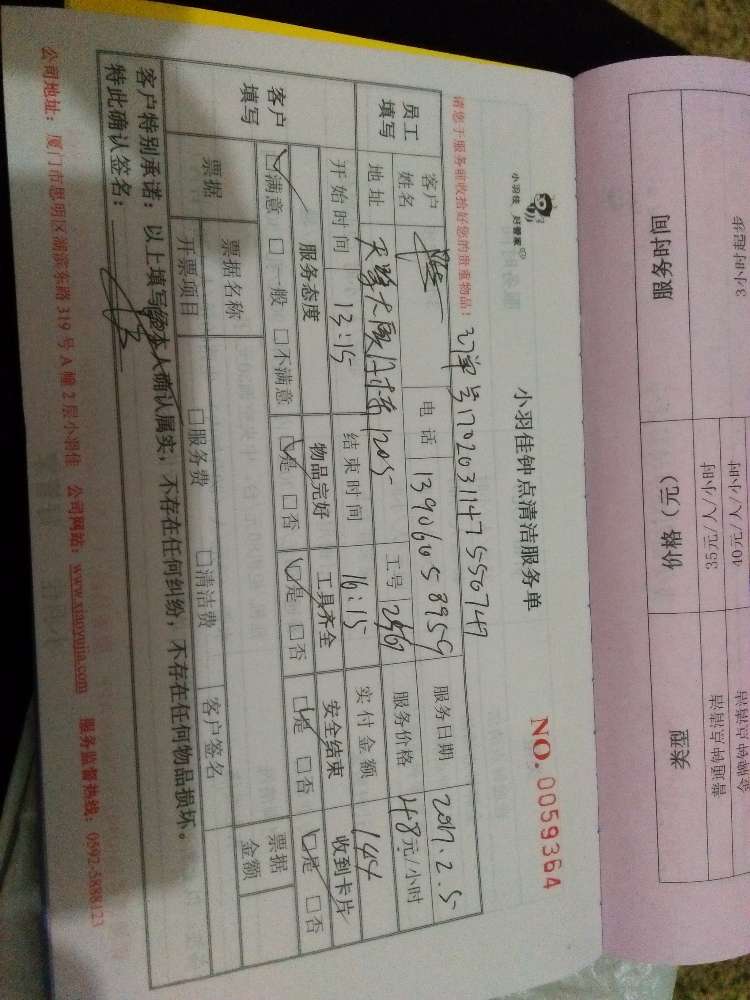 小羽佳 好管家
小羽佳钟点清洁服务单
NO. 0059364
订单号170203114755074
请您于服务前收拾好您的贵重物品!
员工填写
客户姓名 电话 服务日期 2017.2.5
地址 工号 服务价格 48元/小时
开始时间 13:15 结束时间 16:15 实付金额 144
客户填写
服务态度 物品完好 工具齐全 安全结束 收到卡片
☑满意 □一般 □不满意 ☑是 □否 ☑是 □否 ☑是 □否 ☑是 □否
票据 票据名称 票据金额
开票项目 □服务费 □清洁费 客户签名
客户特别承诺:以上填写经本人确认属实,不存在任何纠纷,不存在任何物品损坏。
特此确认签名:
公司地址:厦门市思明区湖滨东路319号A幢2层小羽佳 公司网站:www.xiaoyujia.com 服务监督热线:0592-5888123
服务时间 价格(元) 类型
3小时起步 35元/人/小时 普通钟点清洁
40元/人/小时 金牌钟点清洁